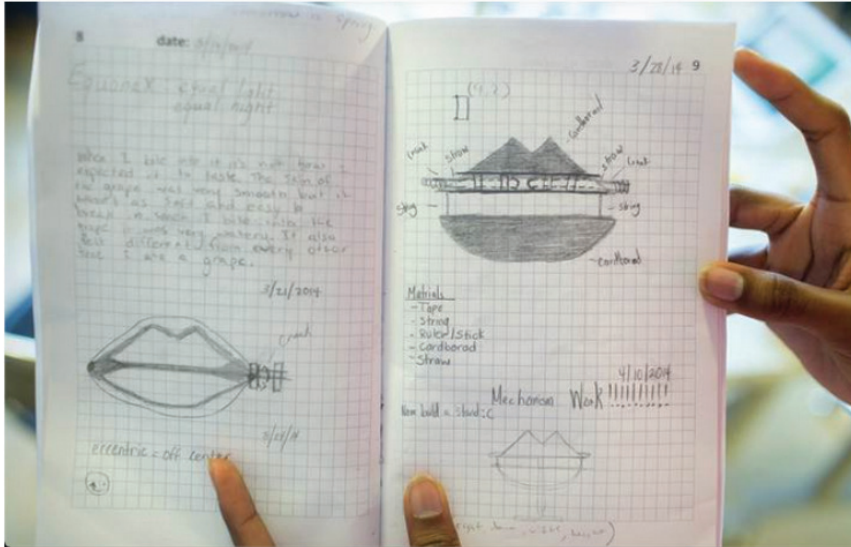 8
date:
Equonex equal light
equal night
When I bite into it it's not how I
expected it to taste. The skin of
the grape was very smooth but it
wasn't as soft and easy to
break in when I bite into the
grape it was very watery. It also
felt different from every other
time I ate a grape.
3/21/2014
crank
eccentric = off center
3/28/14 9
cardborad
straw
straw
string
string
cardborad
Matrials
- Tape
- String
- Ruler/Stick
- Cardborad
- Straw
4/10/2014
Mechanism Work !!!!!!!!!